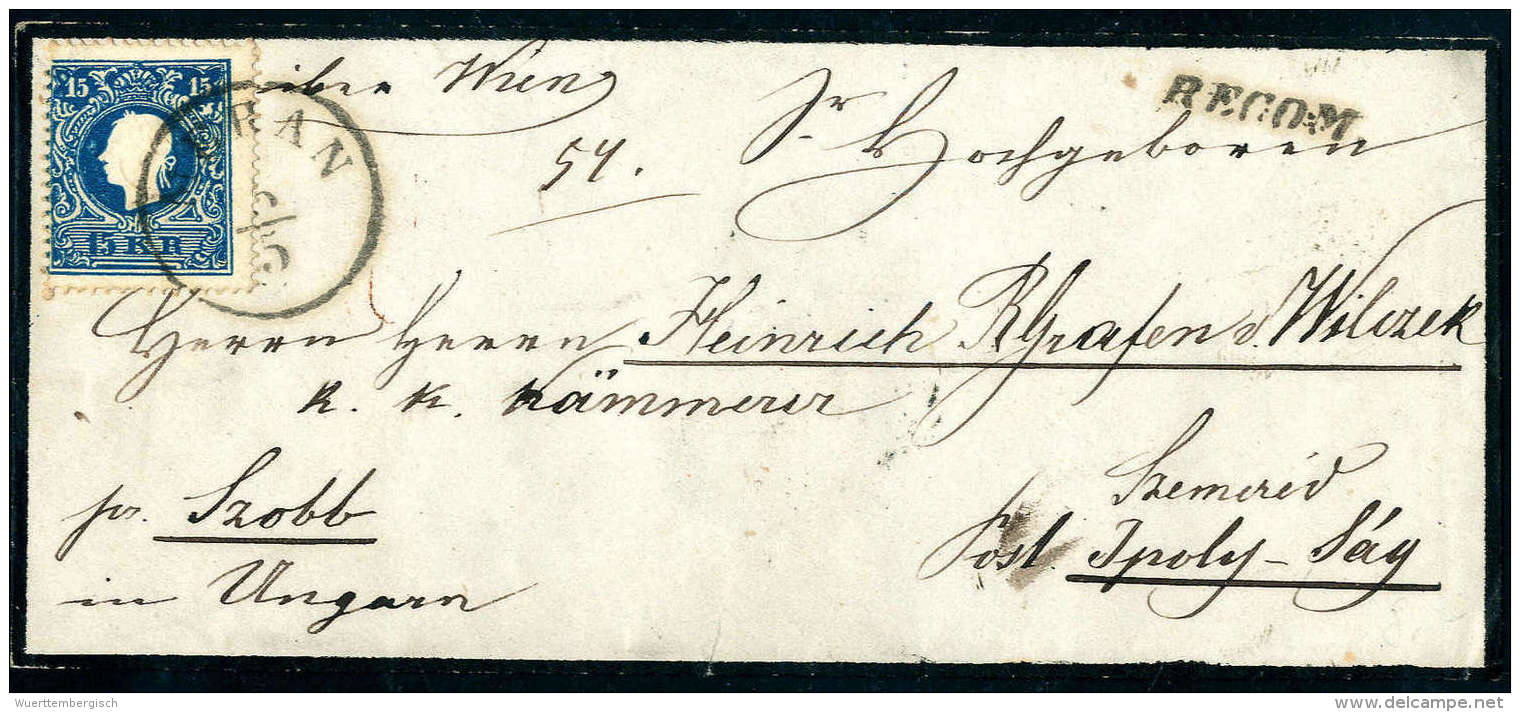 15 15
15 KR
MERAN
6/6
über Wien
54.
RECOM.
Sr Hochgeboren
Herrn Herrn Heinrich RGrafen v. Wilczek
k. k. Kämmerer
Szemeréd
pr. Szobb
Post Ipoly-Ság
in Ungarn
Wuerttembergisch
www.delcampe.net